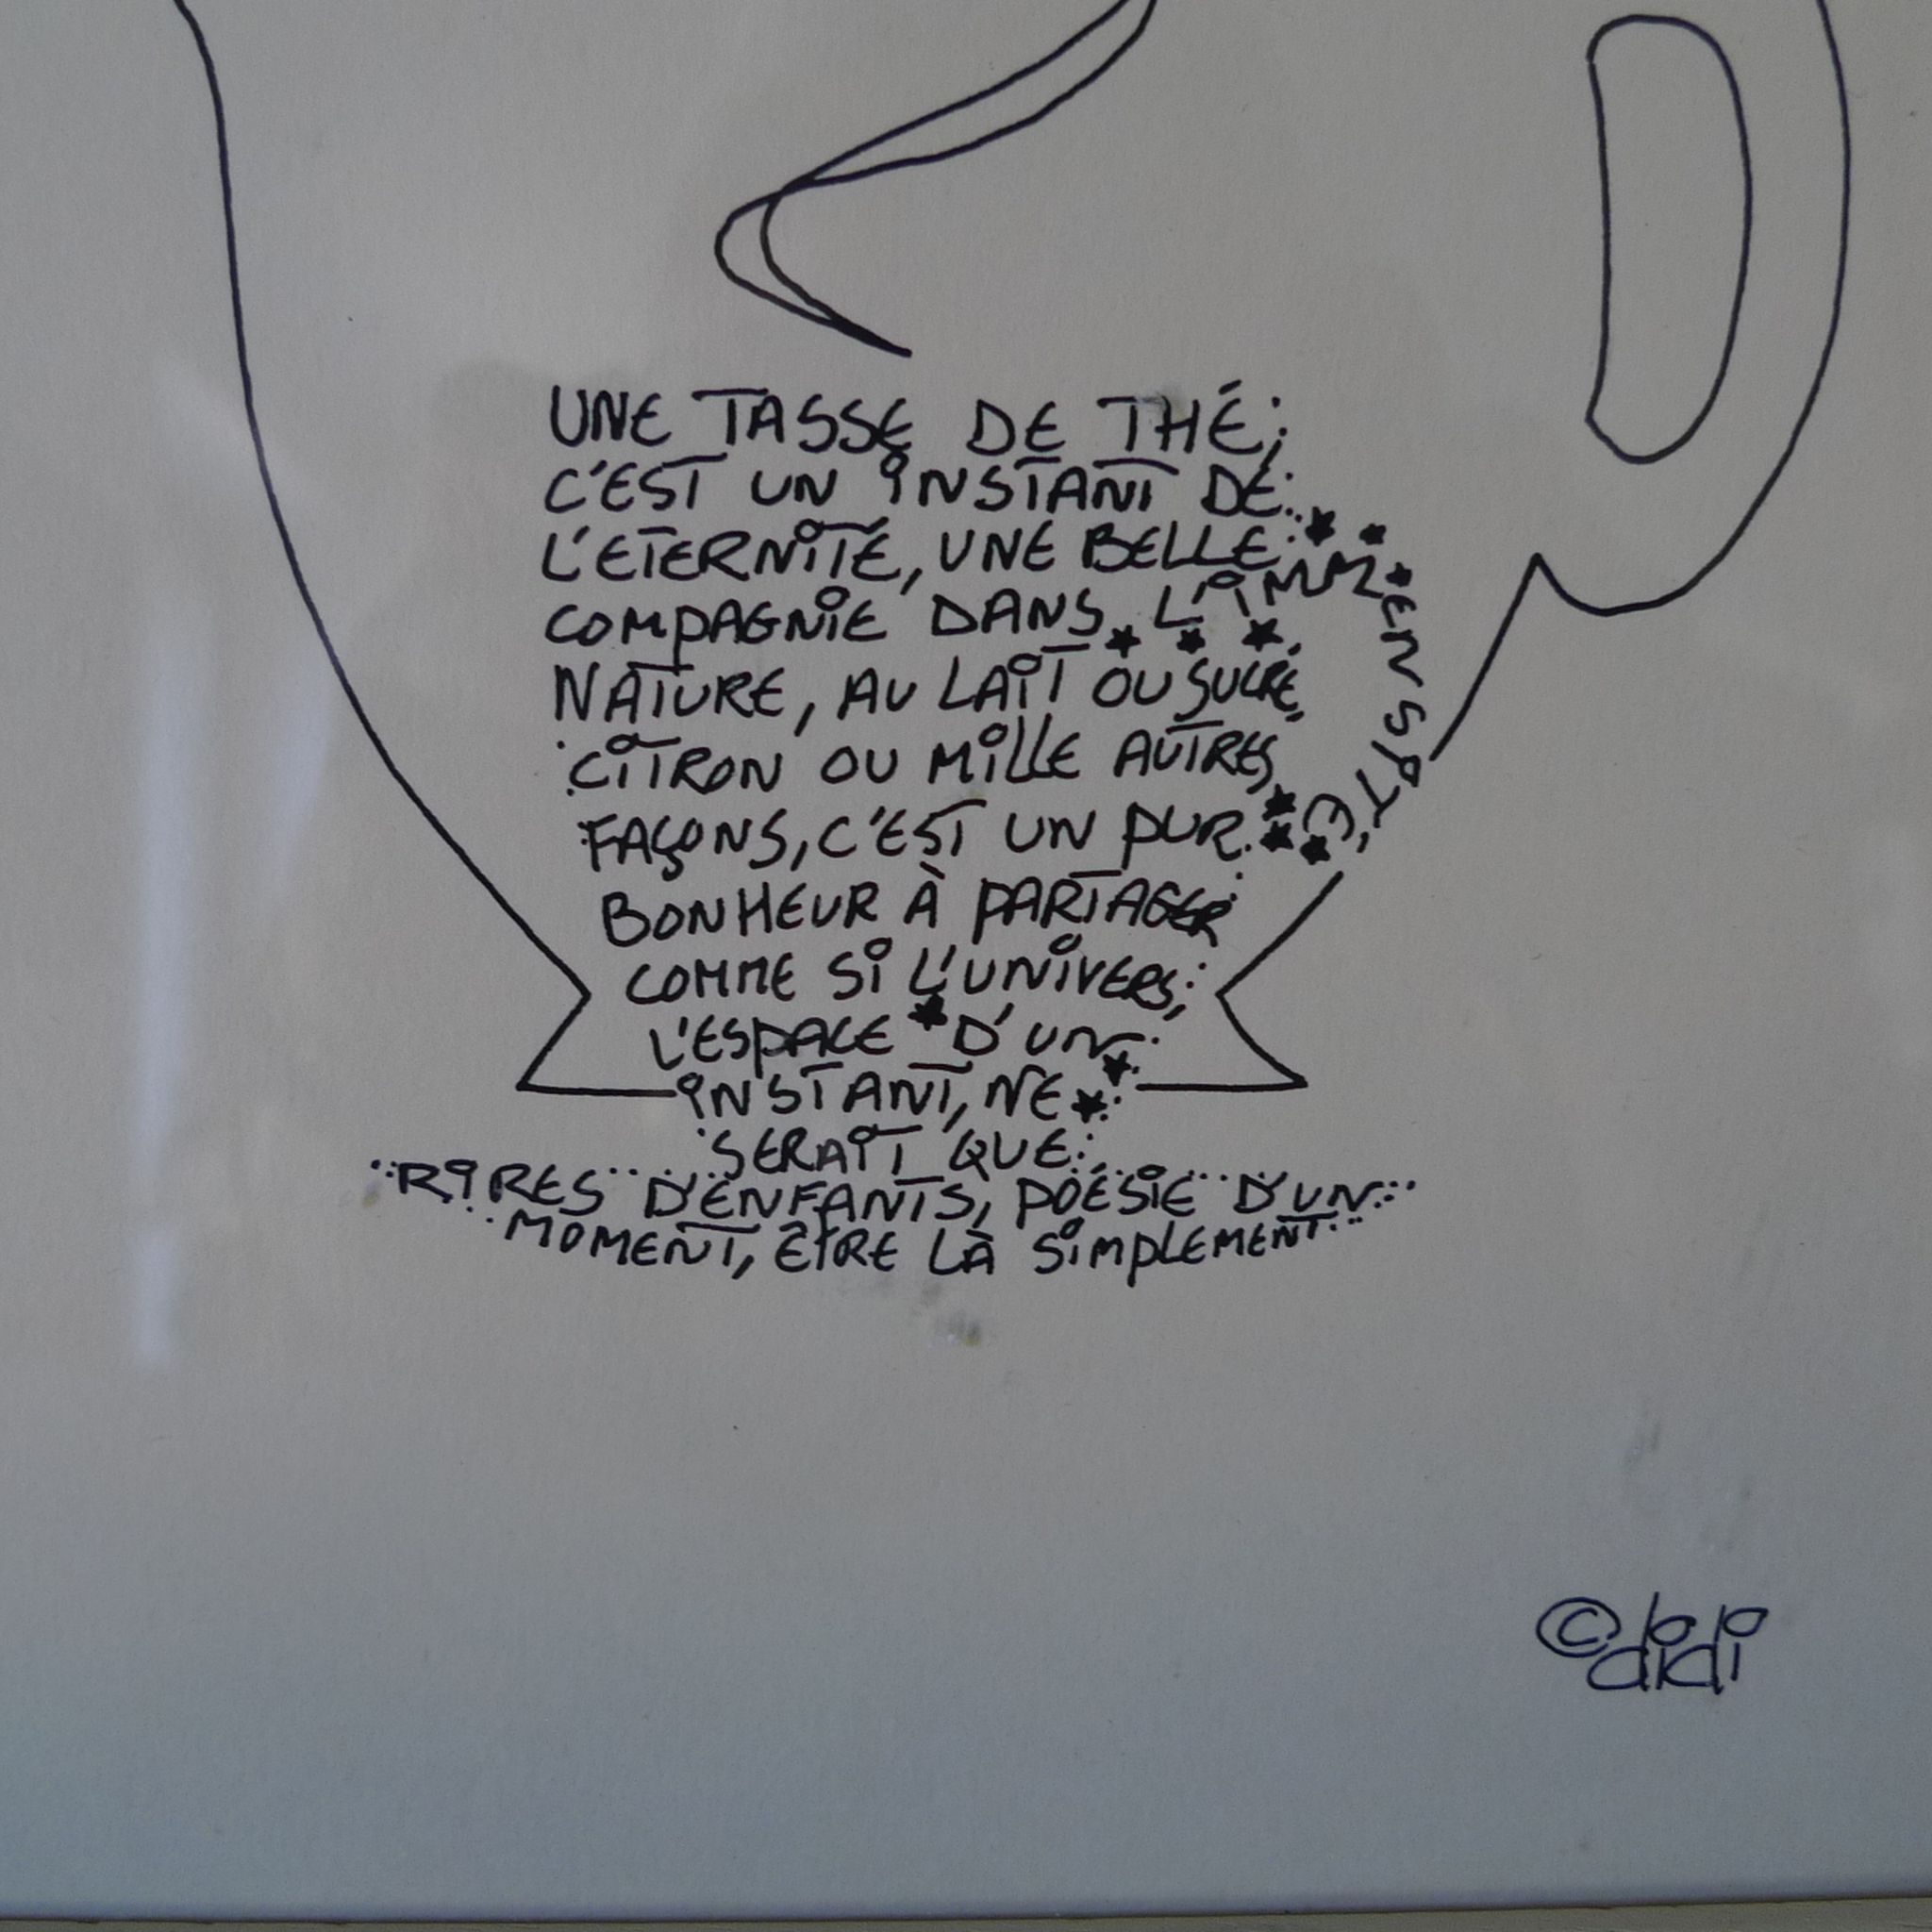 UNE TASSE DE THÉ,
C'EST UN INSTANT DE
L'ETERNITÉ, UNE BELLE
COMPAGNIE DANS L'IMMENSITÉ,
NATURE, AU LAIT OU SUCRÉ,
CITRON OU MILLE AUTRES
FAÇONS, C'EST UN PUR
BONHEUR À PARTAGER
COMME SI L'UNIVERS,
L'ESPACE D'UN
INSTANT, NE
SERAIT QUE
RIRES D'ENFANTS, POÉSIE D'UN
MOMENT, ÊTRE LÀ SIMPLEMENT...
© didi